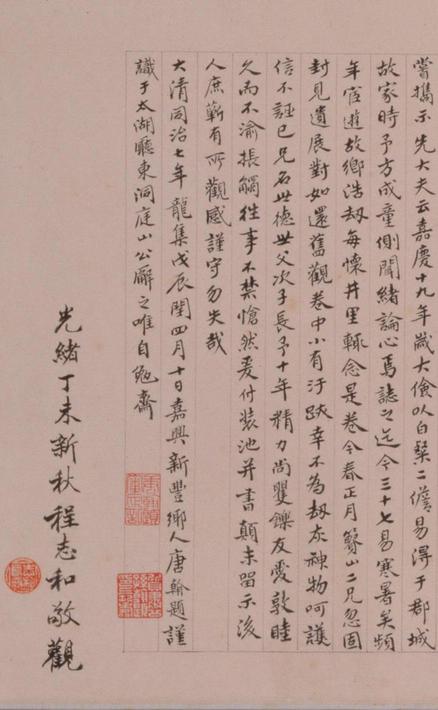 嘗攜示先大夫云嘉慶十九年歲大儉以白粲二儋易得于郡城
故家時予方成童側聞緒論心焉誌之迄今三十七易寒暑矣頻
年宦遊故鄉浩劫每懷井里輒念是卷今春正月簳山二兄忽固
封見遺展對如還舊觀卷中小有汙跌幸不為劫灰神物呵護
信不誣已兄名世德世父次子長予十年精力尚矍鑠友愛敦睦
久而不渝振觸往事不禁愴然爰付裝池并書顛末留示後
人庶蘄有所觀感謹守勿失哉
大清同治七年龍集戊辰閏四月十日嘉興新豐鄉人唐翰題謹
識于太湖廳東洞庭山公廨之唯自勉齋
光緒丁未新秋程志和敬觀